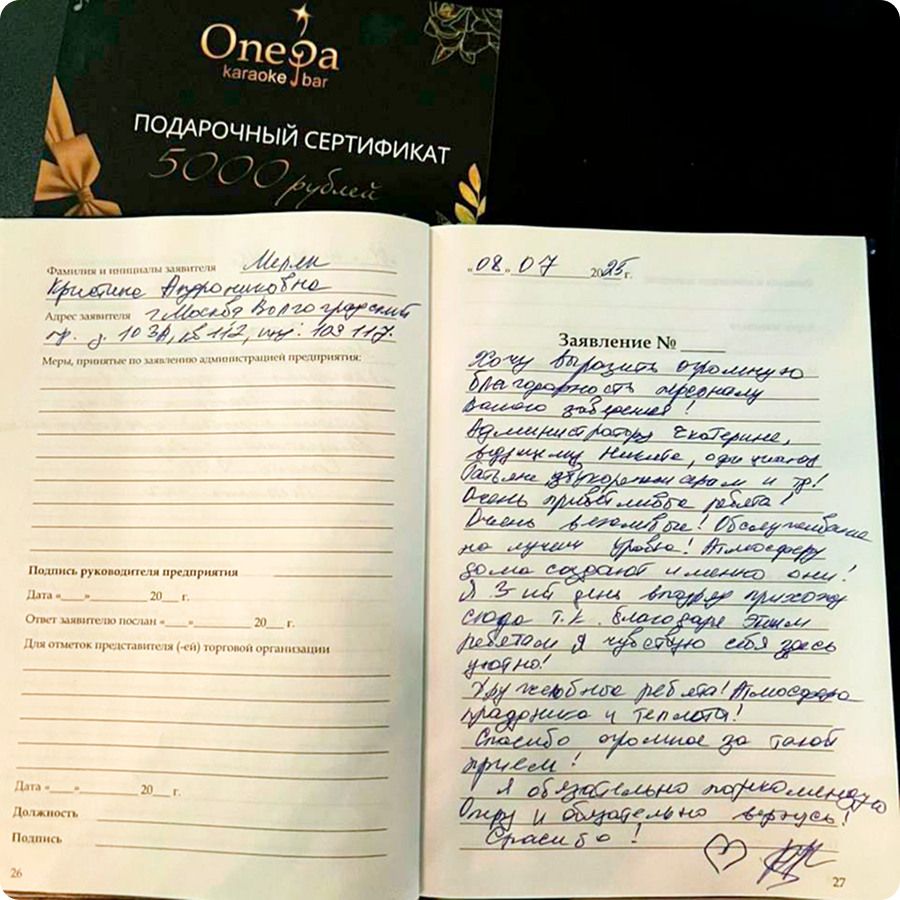 Опера
karaoke bar
ПОДАРОЧНЫЙ СЕРТИФИКАТ
5000 рублей
Фамилия и инициалы заявителя Мерян
Кристина Андрониковна
Адрес заявителя г Москва Волгоградский
пр. д. 103А, кв 112, инд: 109117.
Меры, принятые по заявлению администрацией предприятия:
Подпись руководителя предприятия
Дата «___»________ 20___ г.
Ответ заявителю послан «___»________ 20___ г.
Для отметок представителя (-ей) торговой организации
Дата «___»________ 20___ г.
Должность
Подпись
26
„08.„ 07 2025г.
Заявление № ____
Хочу выразить огромную
благодарность персоналу
Вашего заведения!
Администратору Екатерине,
ведущему Никите, официанту
Татьяне звукорежиссерам и тд!
Очень приветливые ребята!
Очень вежливые! Обслуживание
на лучшем уровне! Атмосферу
дома создают именно они!
Я 3-ий день подряд прихожу
сюда т.к. благодаря этим
ребятам я чувствую себя здесь
уютно!
Дружелюбные ребята! Атмосфера
праздника и теплоты!
Спасибо огромное за такой
прием!
Я обязательно порекомендую
Оперу и обязательно вернусь!
Спасибо!
27